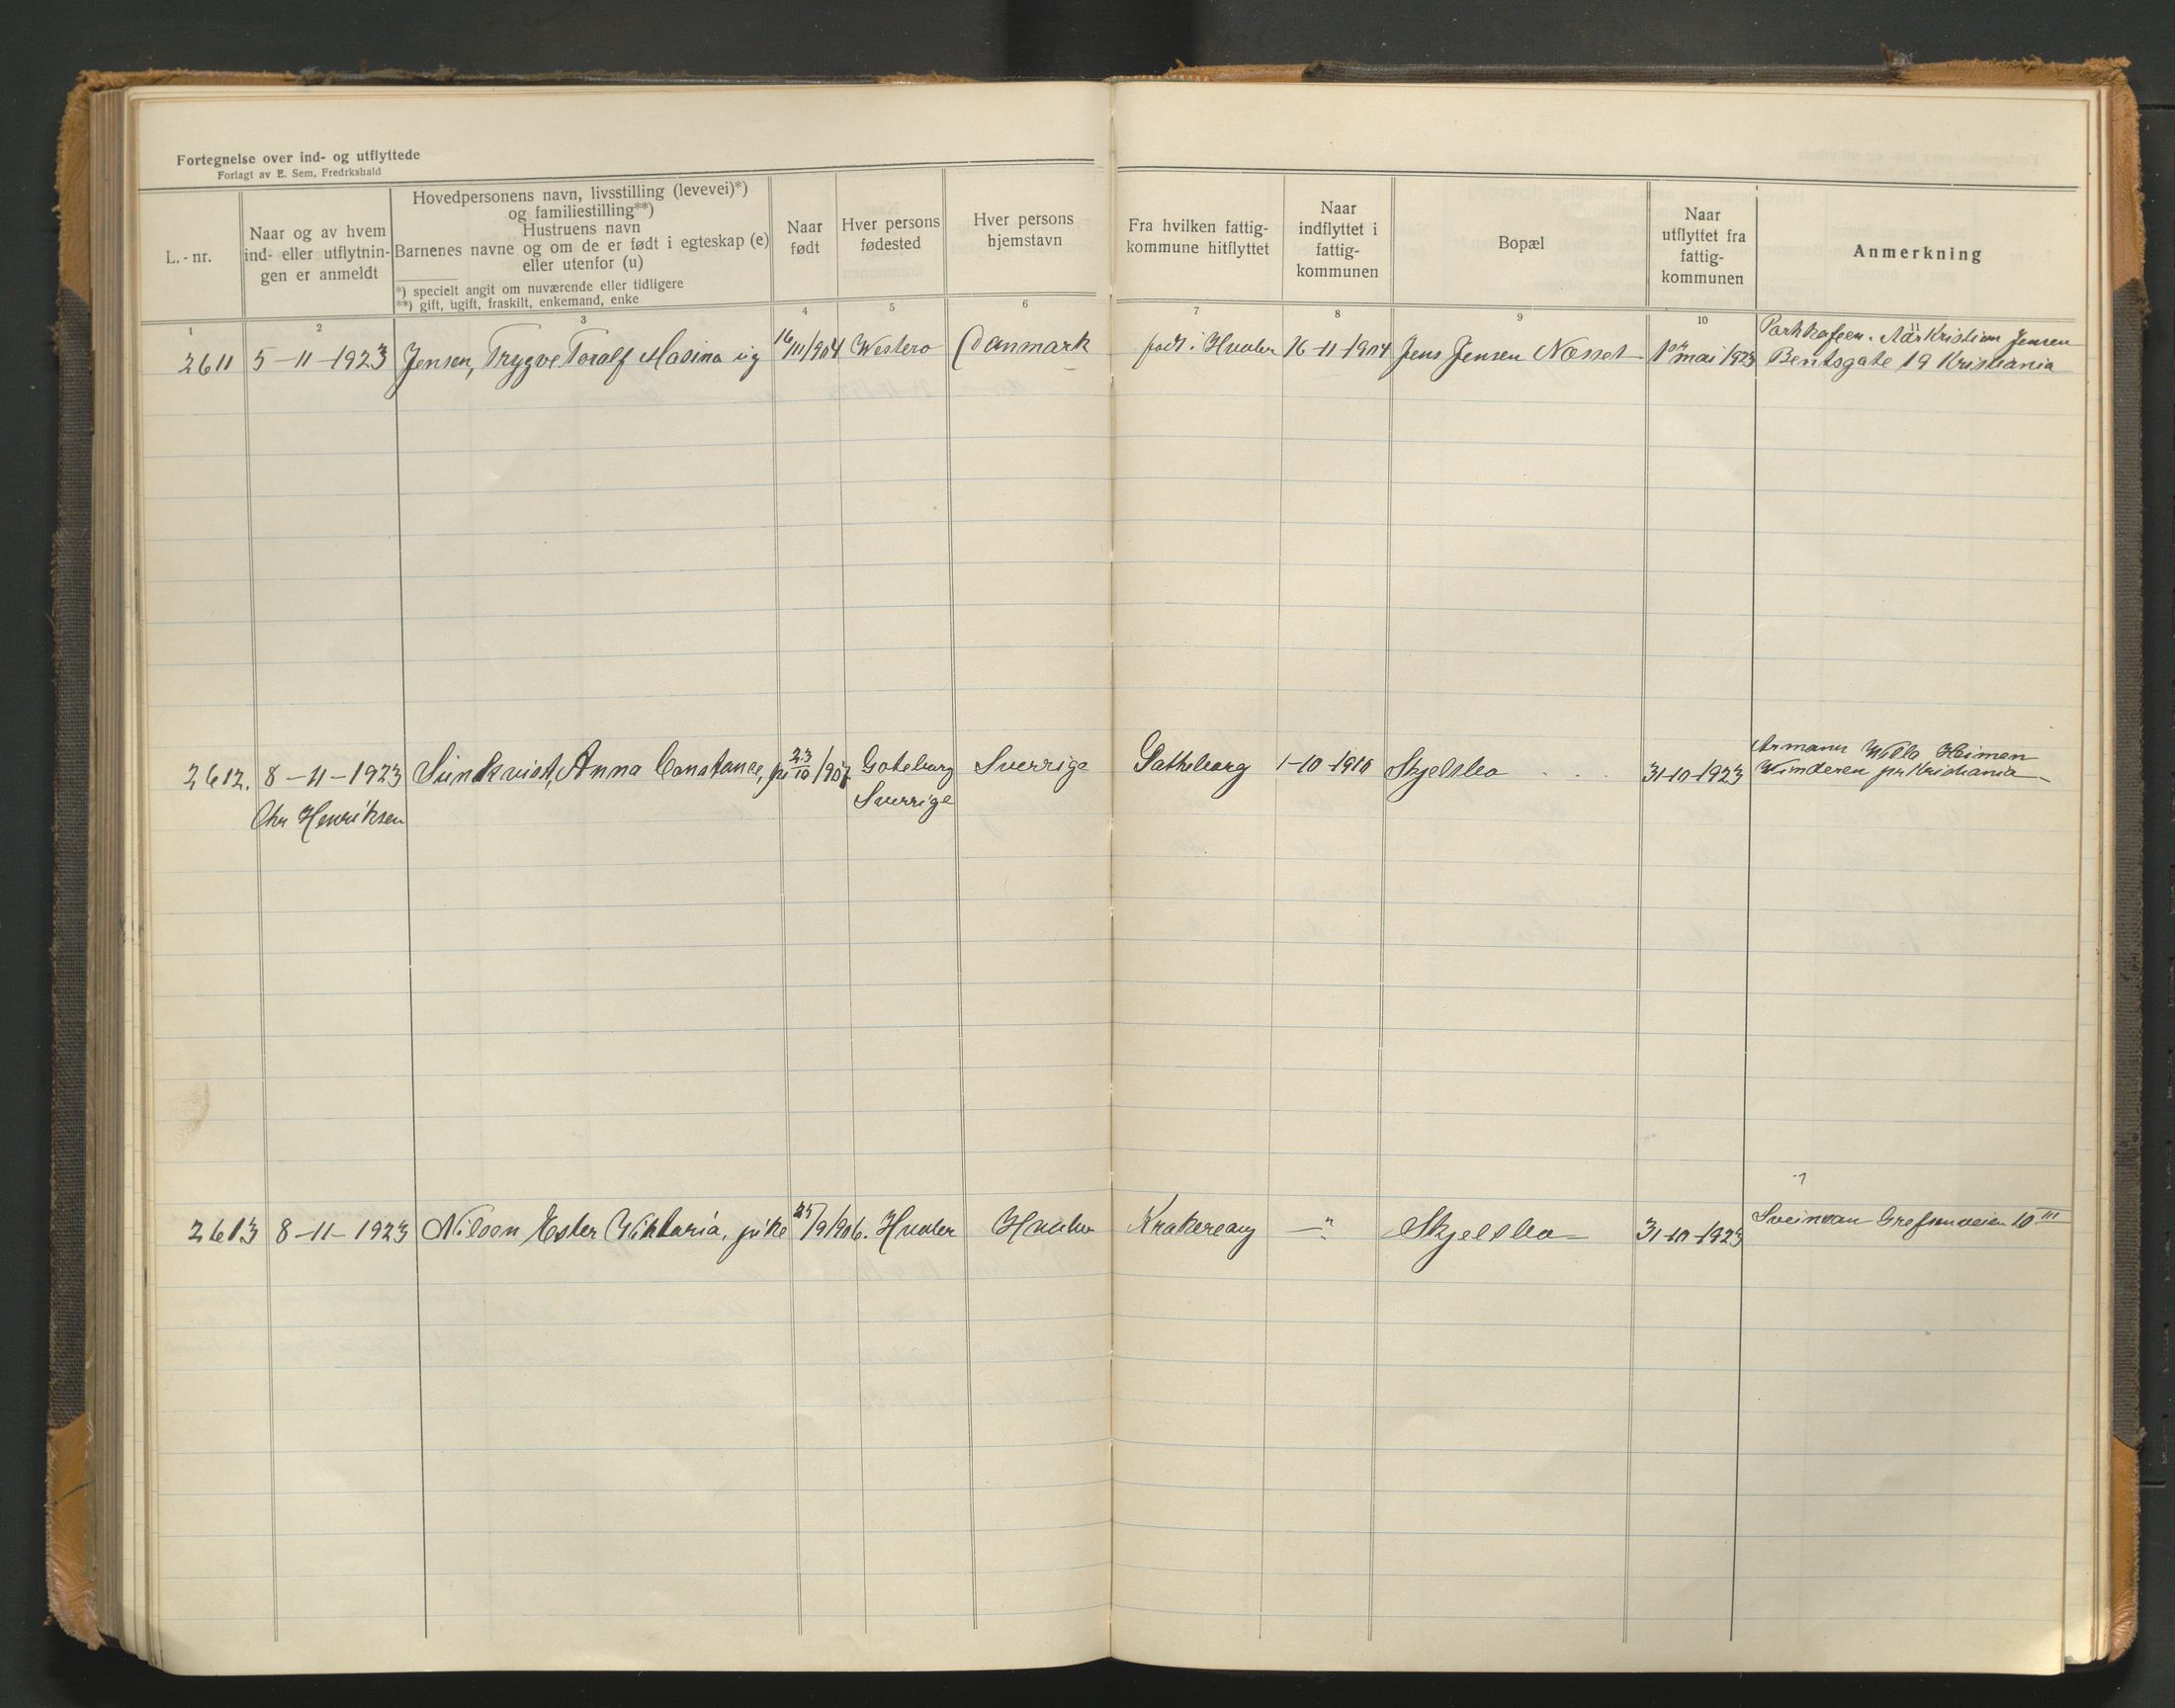 Fortegnelse over ind- og utflyttede
Forlagt av E. Sem, Fredrkshald
L.-nr.
Naar og av hvem
ind- eller utflytnin-
gen er anmeldt
Hovedpersonens navn, livsstilling (levevei)*)
og familiestilling**)
Hustruens navn
Barnenes navne og om de er født i egteskap (e)
eller utenfor (u)
*) specielt angit om nuværende eller tidligere
**) gift, ugift, fraskilt, enkemand, enke
Naar
født
Hver persons
fødested
Hver persons
hjemstavn
Fra hvilken fattig-
kommune hitflyttet
Naar
indflyttet i
fattig-
kommunen
Bopæl
Naar
utflyttet fra
fattig-
kommunen
Anmerkning
1 2 3 4 5 6 7 8 9 10
2611 5-11-1923 Jensen, Trygve Toralf Masina ug 16/11/904 Westero Danmark født i Hvaler 16-11-1904 Jens Jensen Næsset 1ste mai 1923
Kristian Jensen
Bentsgate 19 Kristiania
2612. 8-11-1923 Sundkvist, Anna Constance, pi 23/10/907 Goteburg Sverrige Gotheborg 1-10-1910 Skjelsbo 31-10-1923
Villa Heimen
Vinderen pr Kristiania
Chr Henriksen
Sverrige
2613 8-11-1923 Nilsen Ester Viktoria, pike 25/9/906. Hvaler Hvaler Krakerøy -"- Skjelsbo 31-10-1923
Grefsenveien 10 III